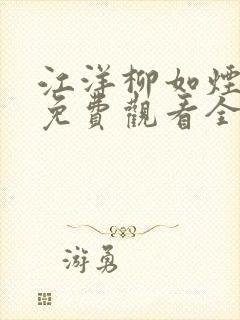 江洋柳如煙
免費觀看全
游勇